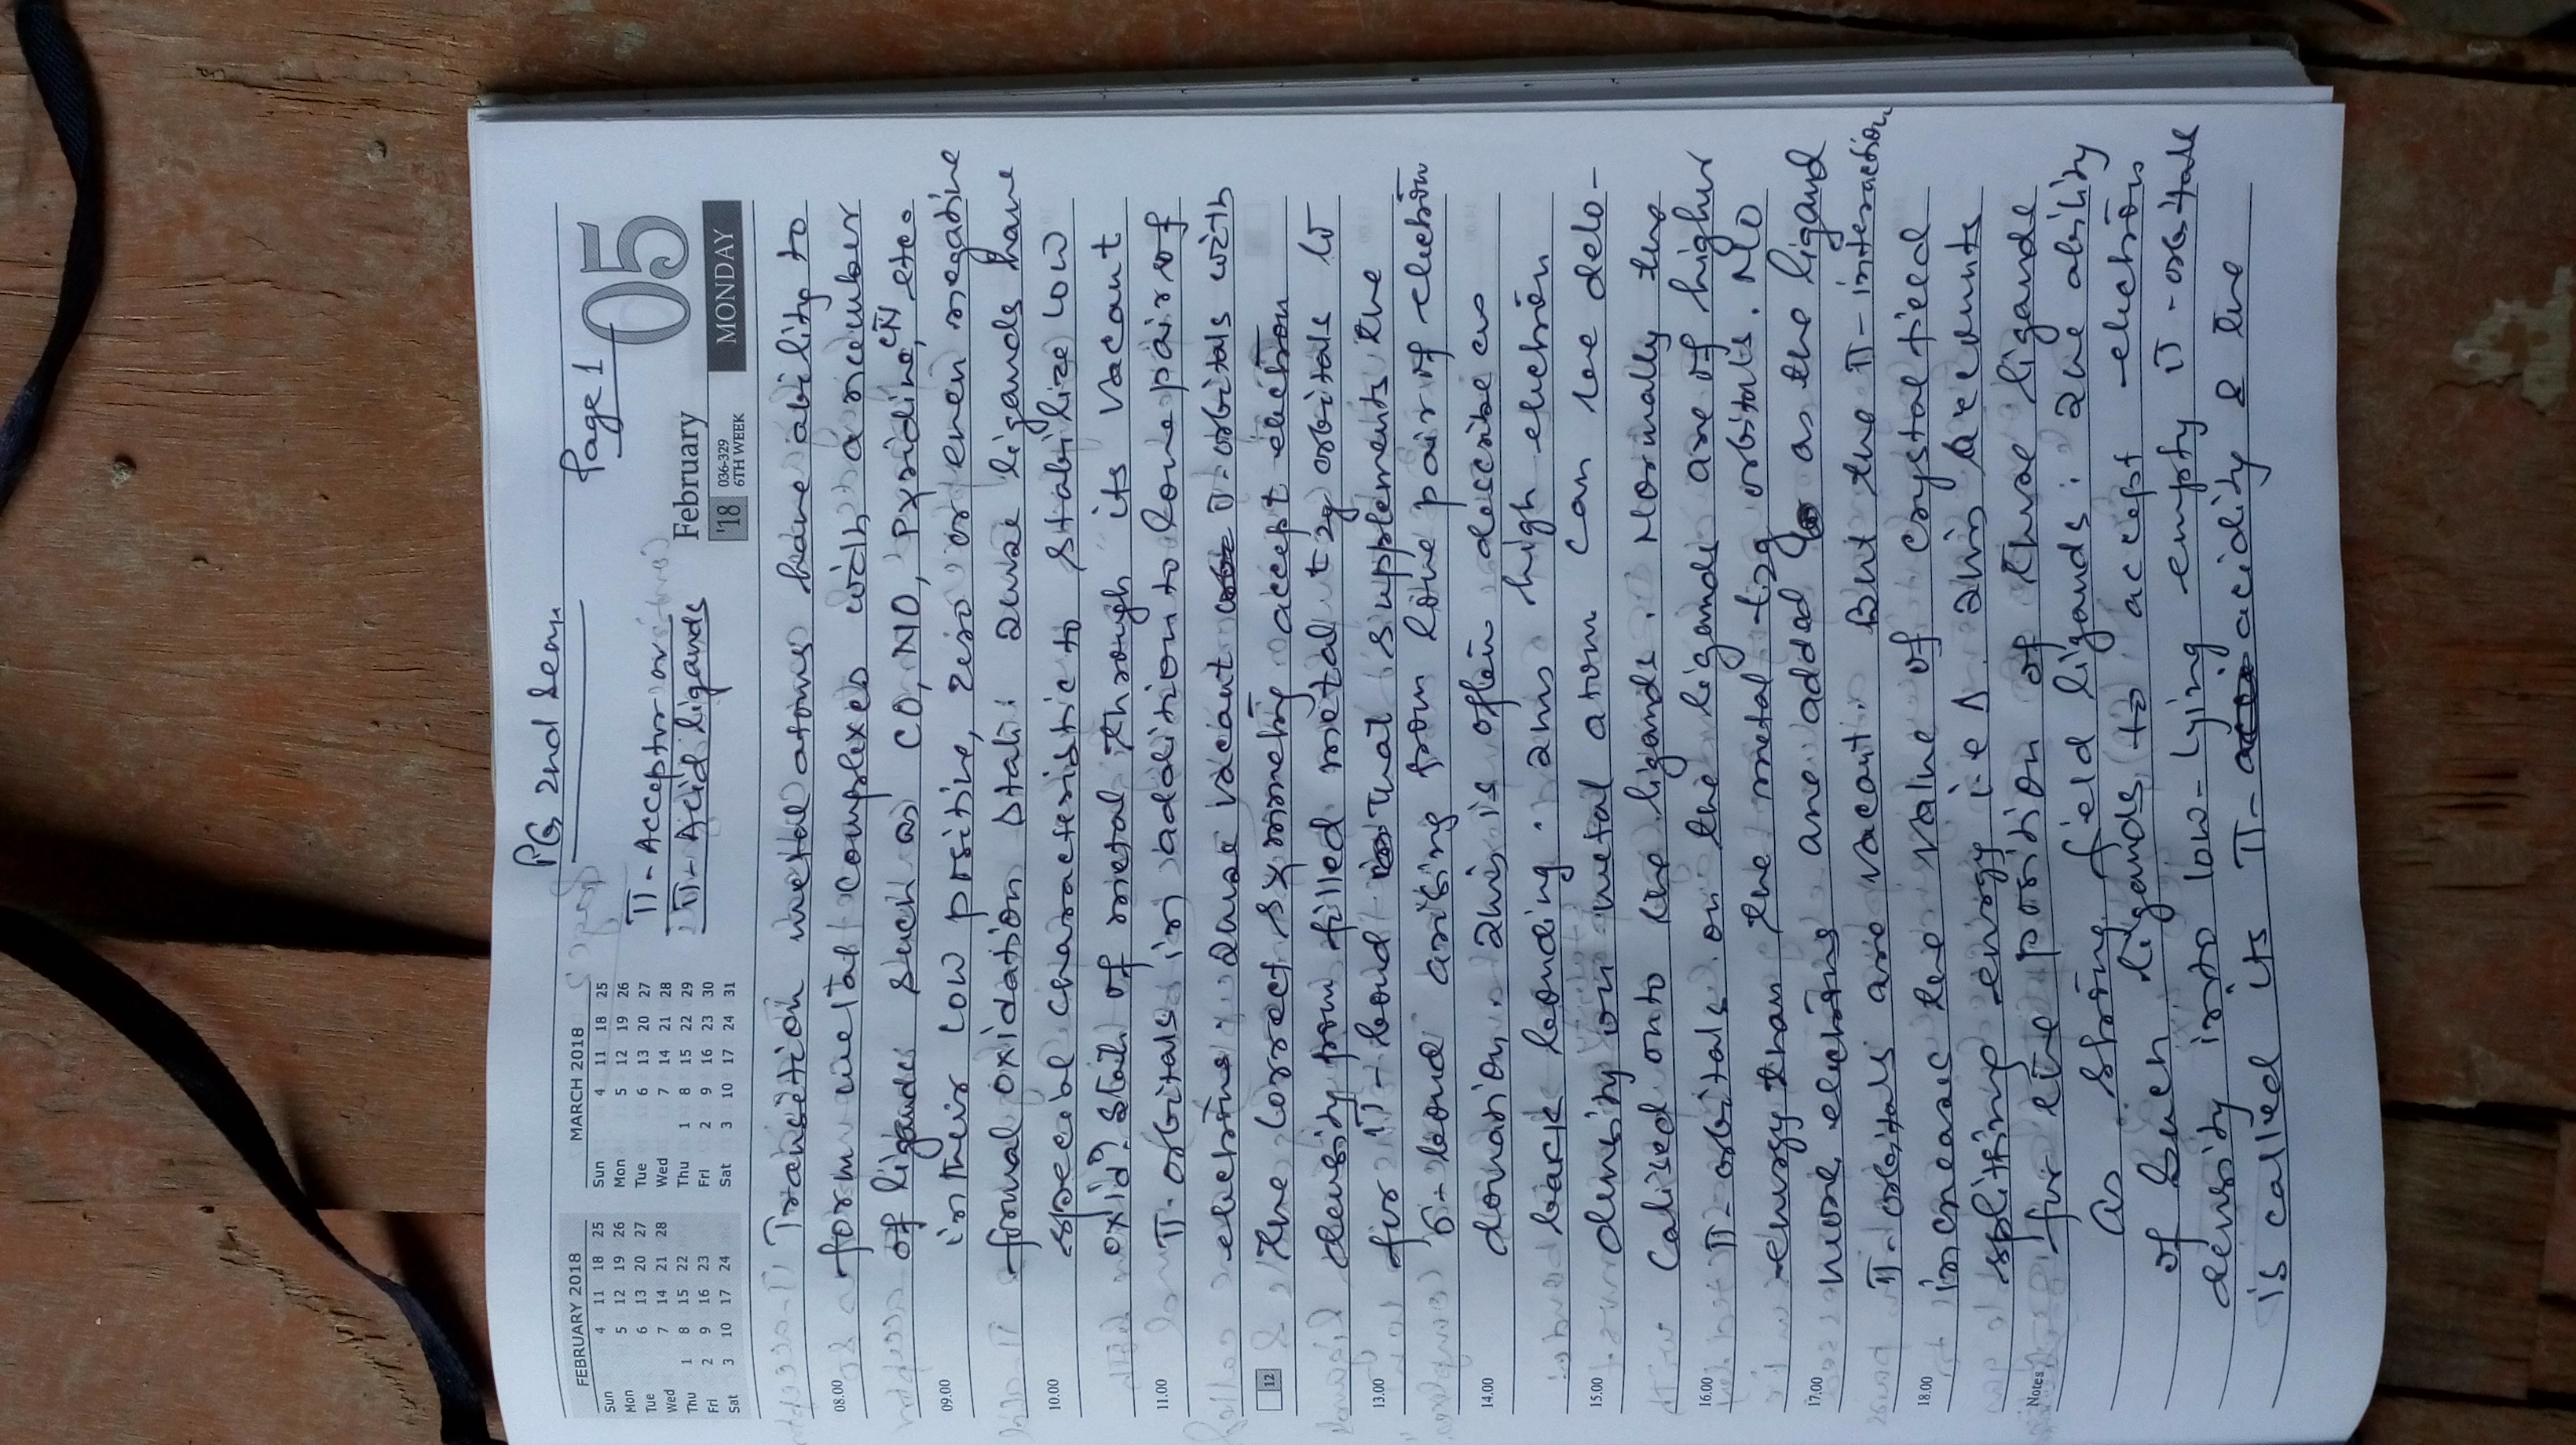 PG 2nd Sem.
Page 1
FEBRUARY 2018
Sun 4 11 18 25
Mon 5 12 19 26
Tue 6 13 20 27
Wed 7 14 21 28
Thu 1 8 15 22
Fri 2 9 16 23
Sat 3 10 17 24
MARCH 2018
Sun 4 11 18 25
Mon 5 12 19 26
Tue 6 13 20 27
Wed 7 14 21 28
Thu 1 8 15 22 29
Fri 2 9 16 23 30
Sat 3 10 17 24 31
π - Acceptor or
π - Acid ligands
February 05
'18 036-329 6TH WEEK MONDAY
Transition metal atoms have ability to
08.00 form metal complexes with a number
of ligands such as CO, NO, Pyridine, CN̄ etc.
09.00 in their low positive, zero or even negative
formal oxidation state. These ligands have
10.00 special characteristic to stabilize low
oxidn. state of metal through its vacant
11.00 π-orbitals in addition to lone pair of
electrons. These vacant π-orbitals with
12 the correct symmetry accept electron
density from filled metal t2g orbitals to
13.00 for π-bond that supplements the
σ-bond arising from lone pair of electron
14.00 donation. This is often describe as
back bonding. This high electron
15.00 density on metal atom can be delo-
calised onto the ligands. Normally the
16.00 π-orbitals on the ligands are of higher
energy than the metal t2g orbitals. No
17.00 more electrons are added as the ligand
π-orbitals are vacant. But the π-interaction
18.00 increase the value of crystal field
splitting energy i.e Δ. This accounts
Notes for the position of these ligands
as strong field ligands. The ability
of such ligands to accept electron
density into low-lying empty π-orbitals
is called its π-acidity & the